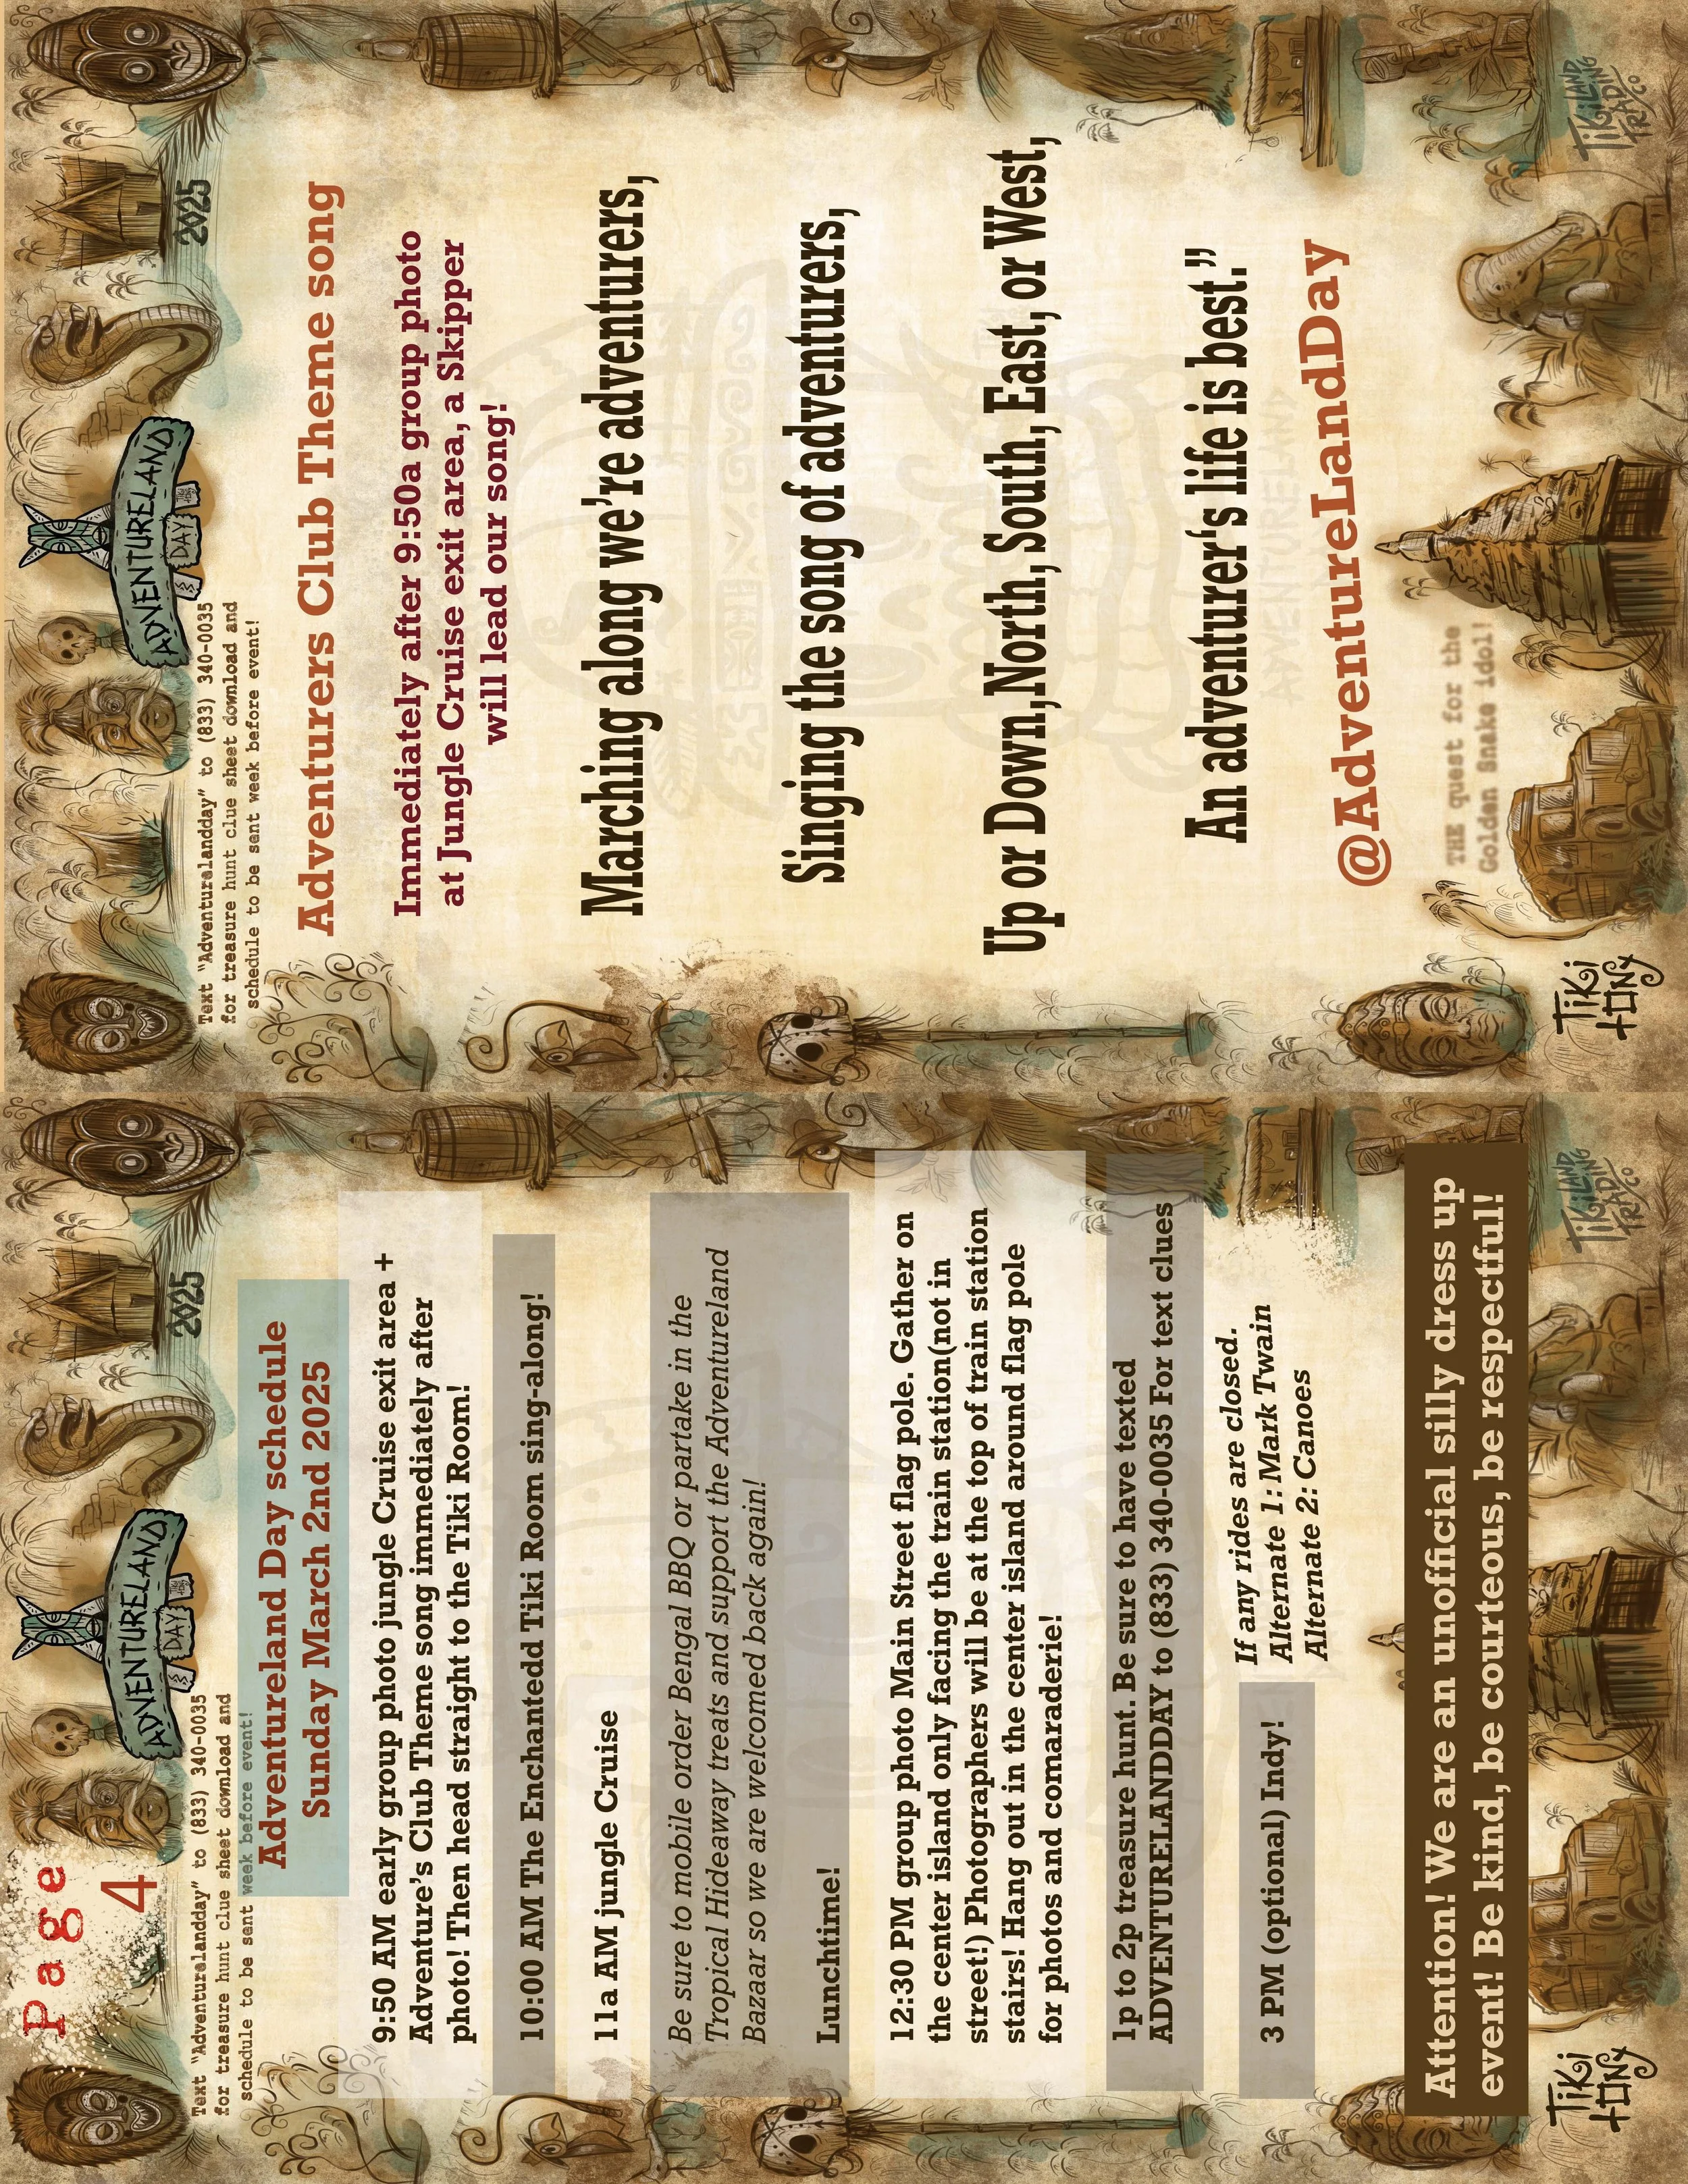 Page
4
2025
ADVENTURELAND
DAY
Text “Adventurelandday” to (833) 340-0035
for treasure hunt clue sheet download and
schedule to be sent week before event!
Adventureland Day schedule
Sunday March 2nd 2025
9:50 AM early group photo jungle Cruise exit area +
Adventure’s Club Theme song immediately after
photo! Then head straight to the Tiki Room!
10:00 AM The Enchantedd Tiki Room sing-along!
11a AM jungle Cruise
Be sure to mobile order Bengal BBQ or partake in the
Tropical Hideaway treats and support the Adventureland
Bazaar so we are welcomed back again!
Lunchtime!
12:30 PM group photo Main Street flag pole. Gather on
the center island only facing the train station(not in
street!) Photographers will be at the top of train station
stairs! Hang out in the center island around flag pole
for photos and comaraderie!
1p to 2p treasure hunt. Be sure to have texted
ADVENTURELANDDAY to (833) 340-0035 For text clues
3 PM (optional) Indy!
If any rides are closed.
Alternate 1: Mark Twain
Alternate 2: Canoes
Attention! We are an unofficial silly dress up
event! Be kind, be courteous, be respectful!
TIKI
TONY
TIKILAND
TRADING
CO
2025
ADVENTURELAND
DAY
Text “Adventurelandday” to (833) 340-0035
for treasure hunt clue sheet download and
schedule to be sent week before event!
Adventurers Club Theme song
Immediately after 9:50a group photo
at Jungle Cruise exit area, a Skipper
will lead our song!
Marching along we’re adventurers,
Singing the song of adventurers,
Up or Down,North, South, East, or West,
An adventurer‘s life is best.”
@AdventureLandDay
THE quest for the
Golden Snake idol!
ADVENTURELAND
TIKI
TONY
TIKILAND
TRADING
CO